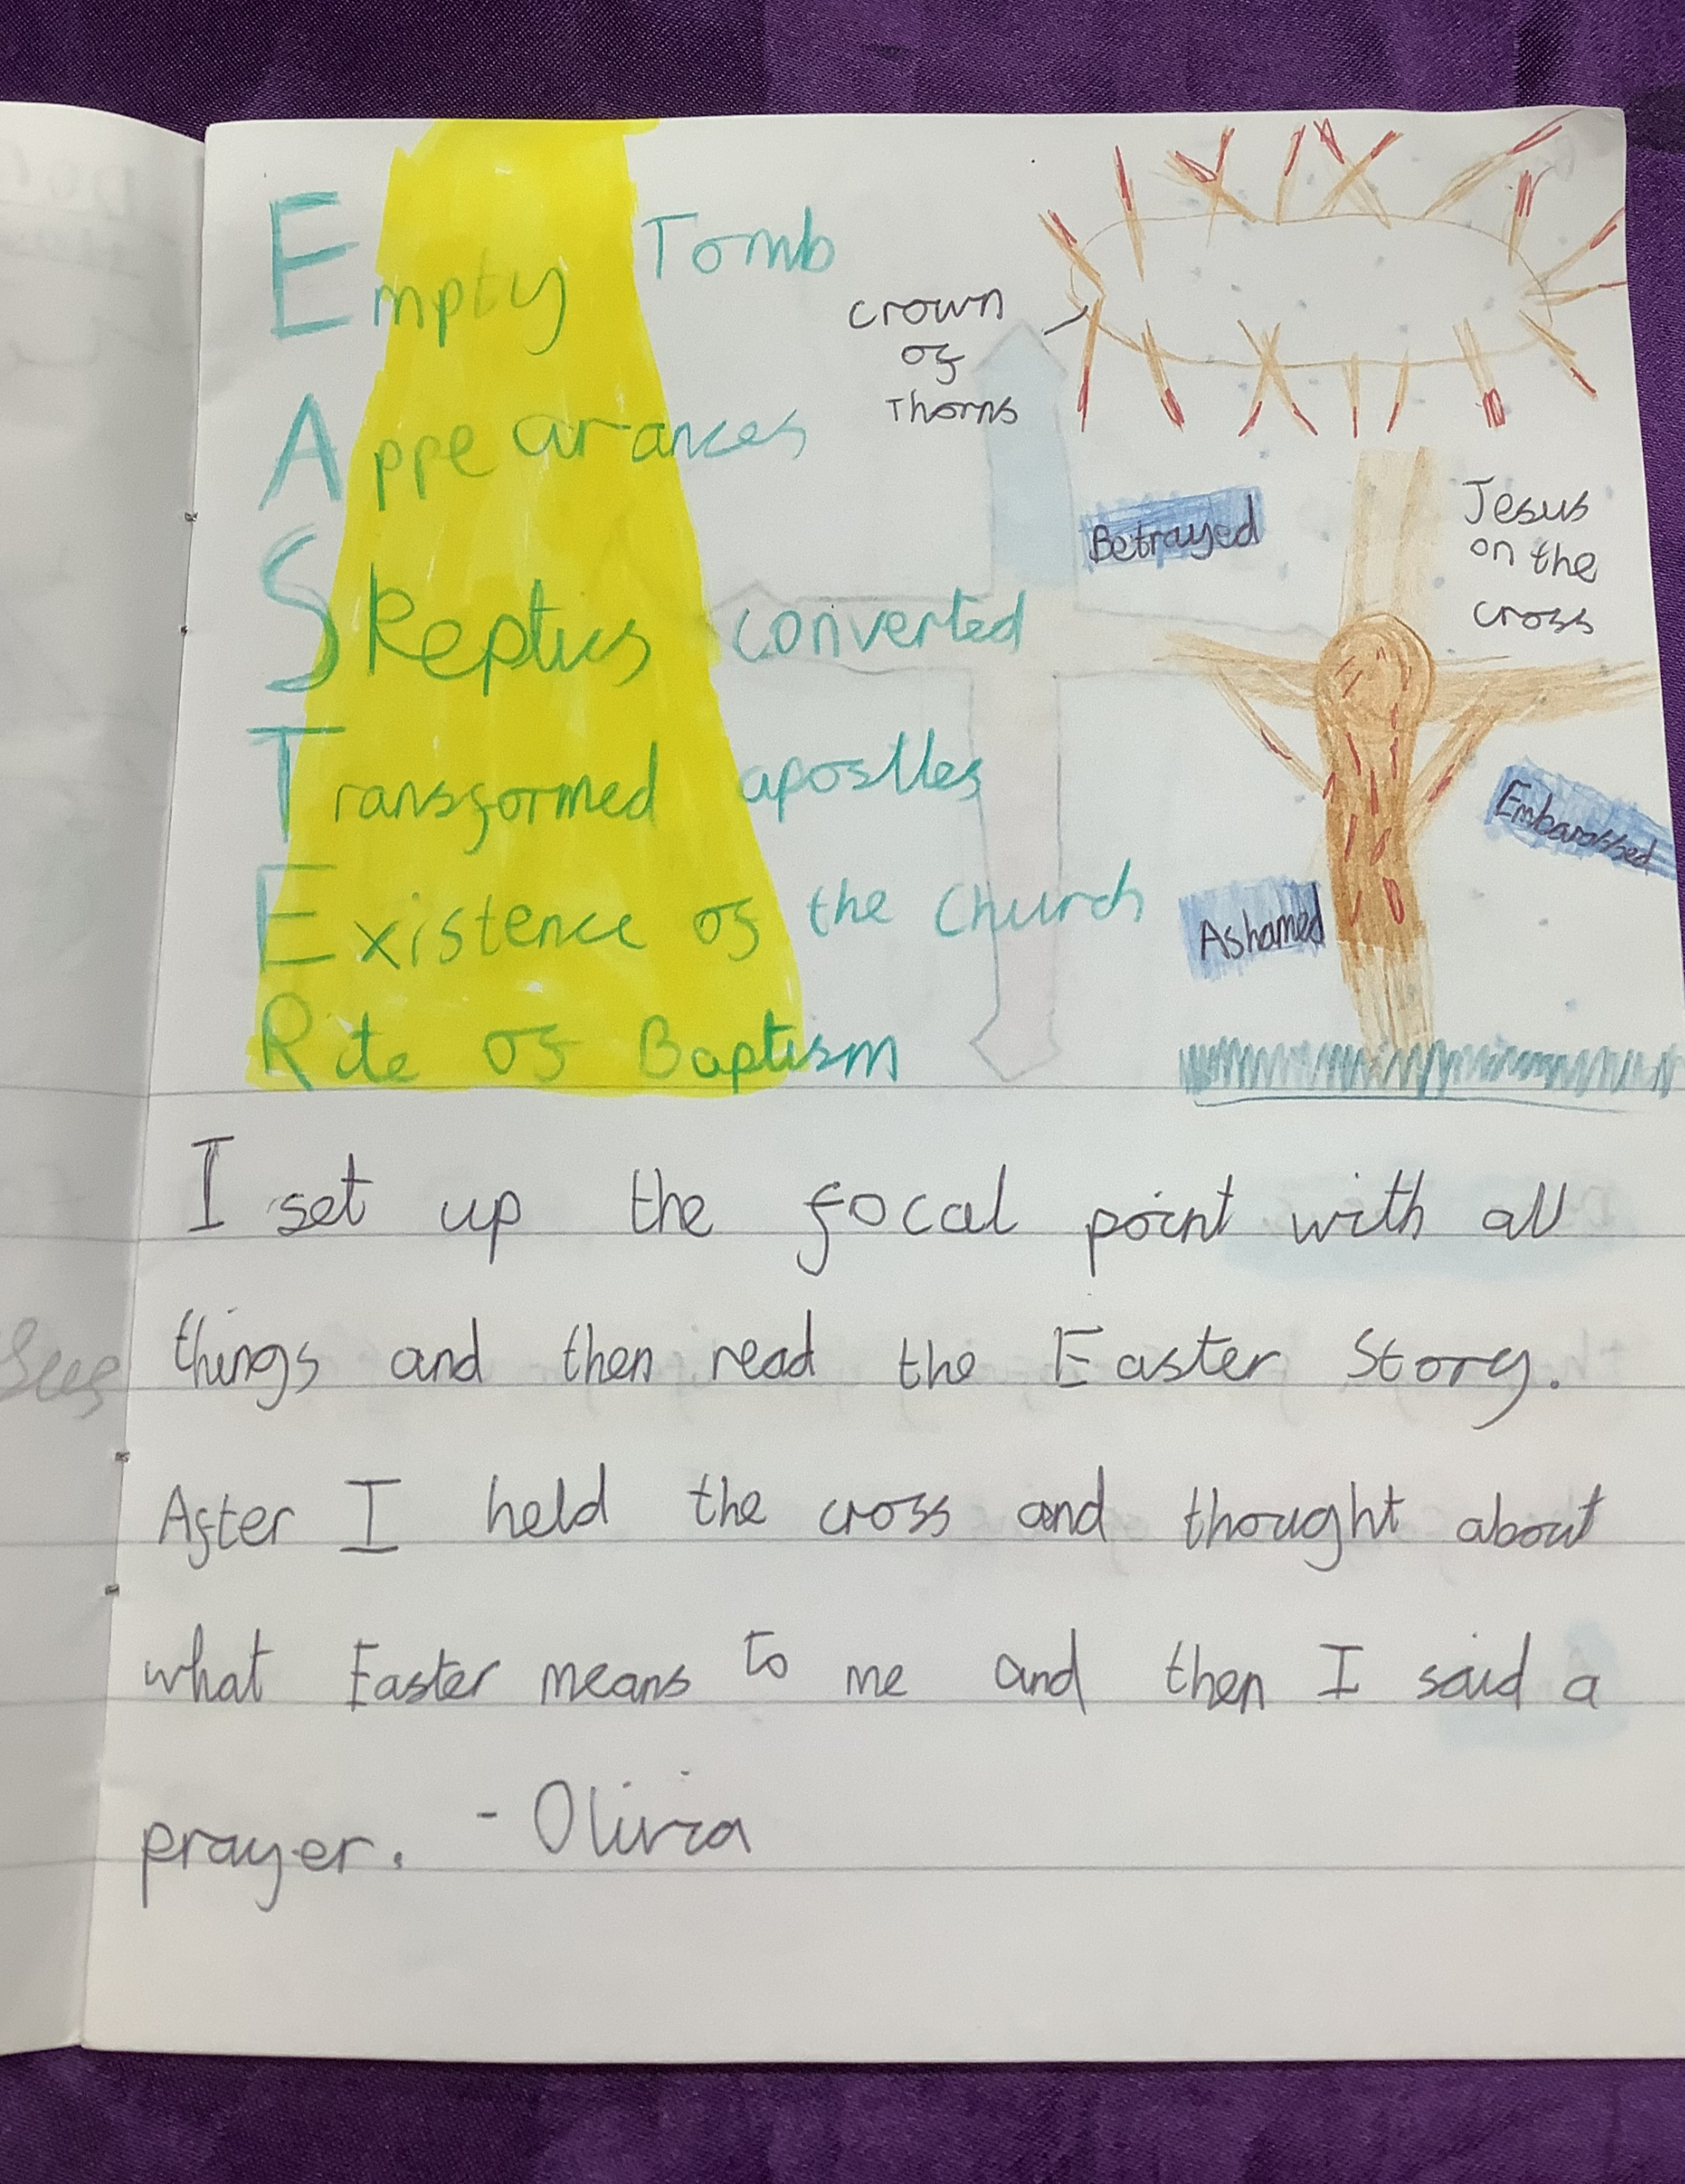 Empty Tomb
Appearances
Skeptics converted
Transformed apostles
Existence of the Church
Rite of Baptism
crown
of
Thorns
Betrayed
Jesus
on the
cross
Embarossed
Ashamed
I set up the focal point with all
things and then read the Easter Story.
After I held the cross and thought about
what Easter means to me and then I said a
prayer. - Olivia